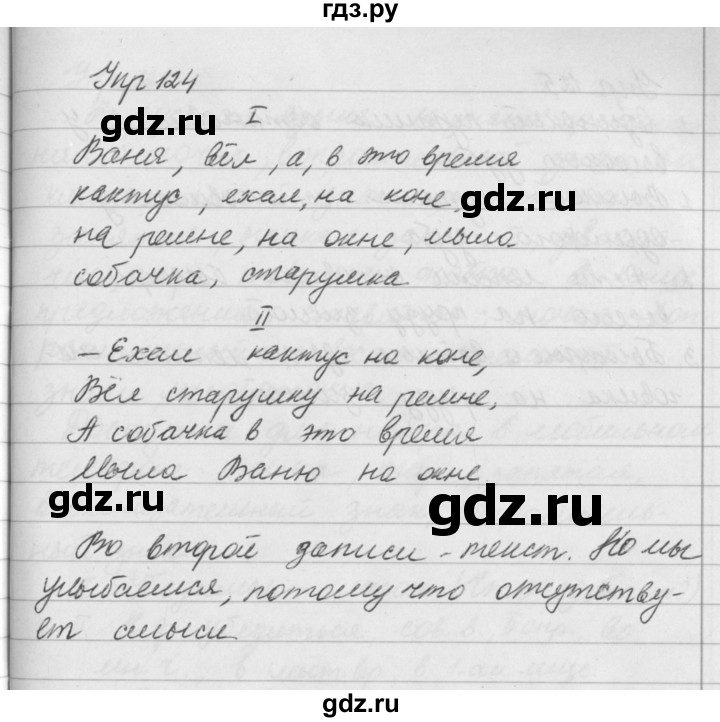 гдз.ру
Упр 124
gdz.ru
I
Ваня, вёл, а, в это время
кактус, ехал, на коне,
gdz.ru
на ремне, на окне, мыла
собачка, старушка
II
– Ехал кактус на коне,
Вёл старушку на ремне,
А собачка в это время
Мыла Ваню на окне
gdz.ru
gdz.ru
Во второй записи - текст. Но мы
улыбаемся, потому что отсутству-
ет смысл
gdz.ru